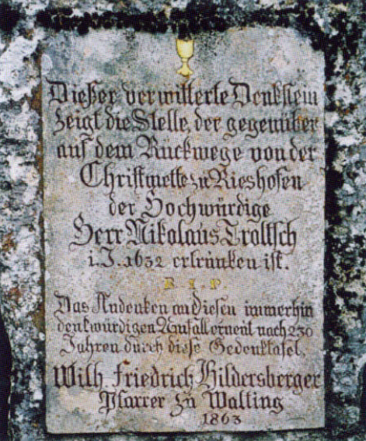 Dießer verwitterte Denkstein
zeigt die Stelle, der gegenüber
auf dem Rückwege von der
Christmette zu Rieshofen
der Hochwürdige
Herr Nikolaus Troltsch
i. J. 1632 ertrunken ist.
R. I. P
Das Andenken an diesen immerhin
denkwürdigen Unfall erneut nach 230
Jahren durch diese Gedenktafel.
Wilh. Friedrich Hildersberger
Pfarrer zu Walting
1863